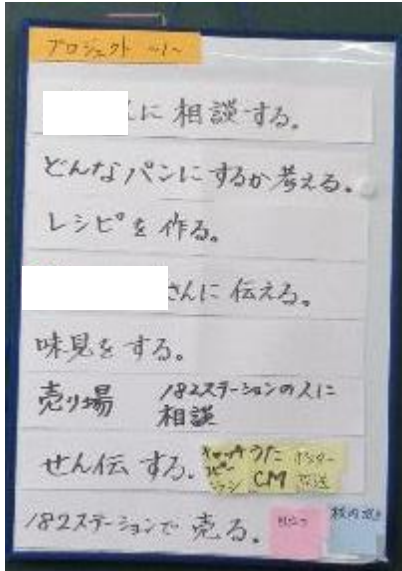 プロジェクト ~1~
に相談する。
どんなパンにするか考える。
レシピを作る。
さんに伝える。
味見をする。
売り場 182ステーションの人に
相談
せん伝する。
キャッチ
コピー
うた
CM
ポスター
放送
182ステーションで売る。